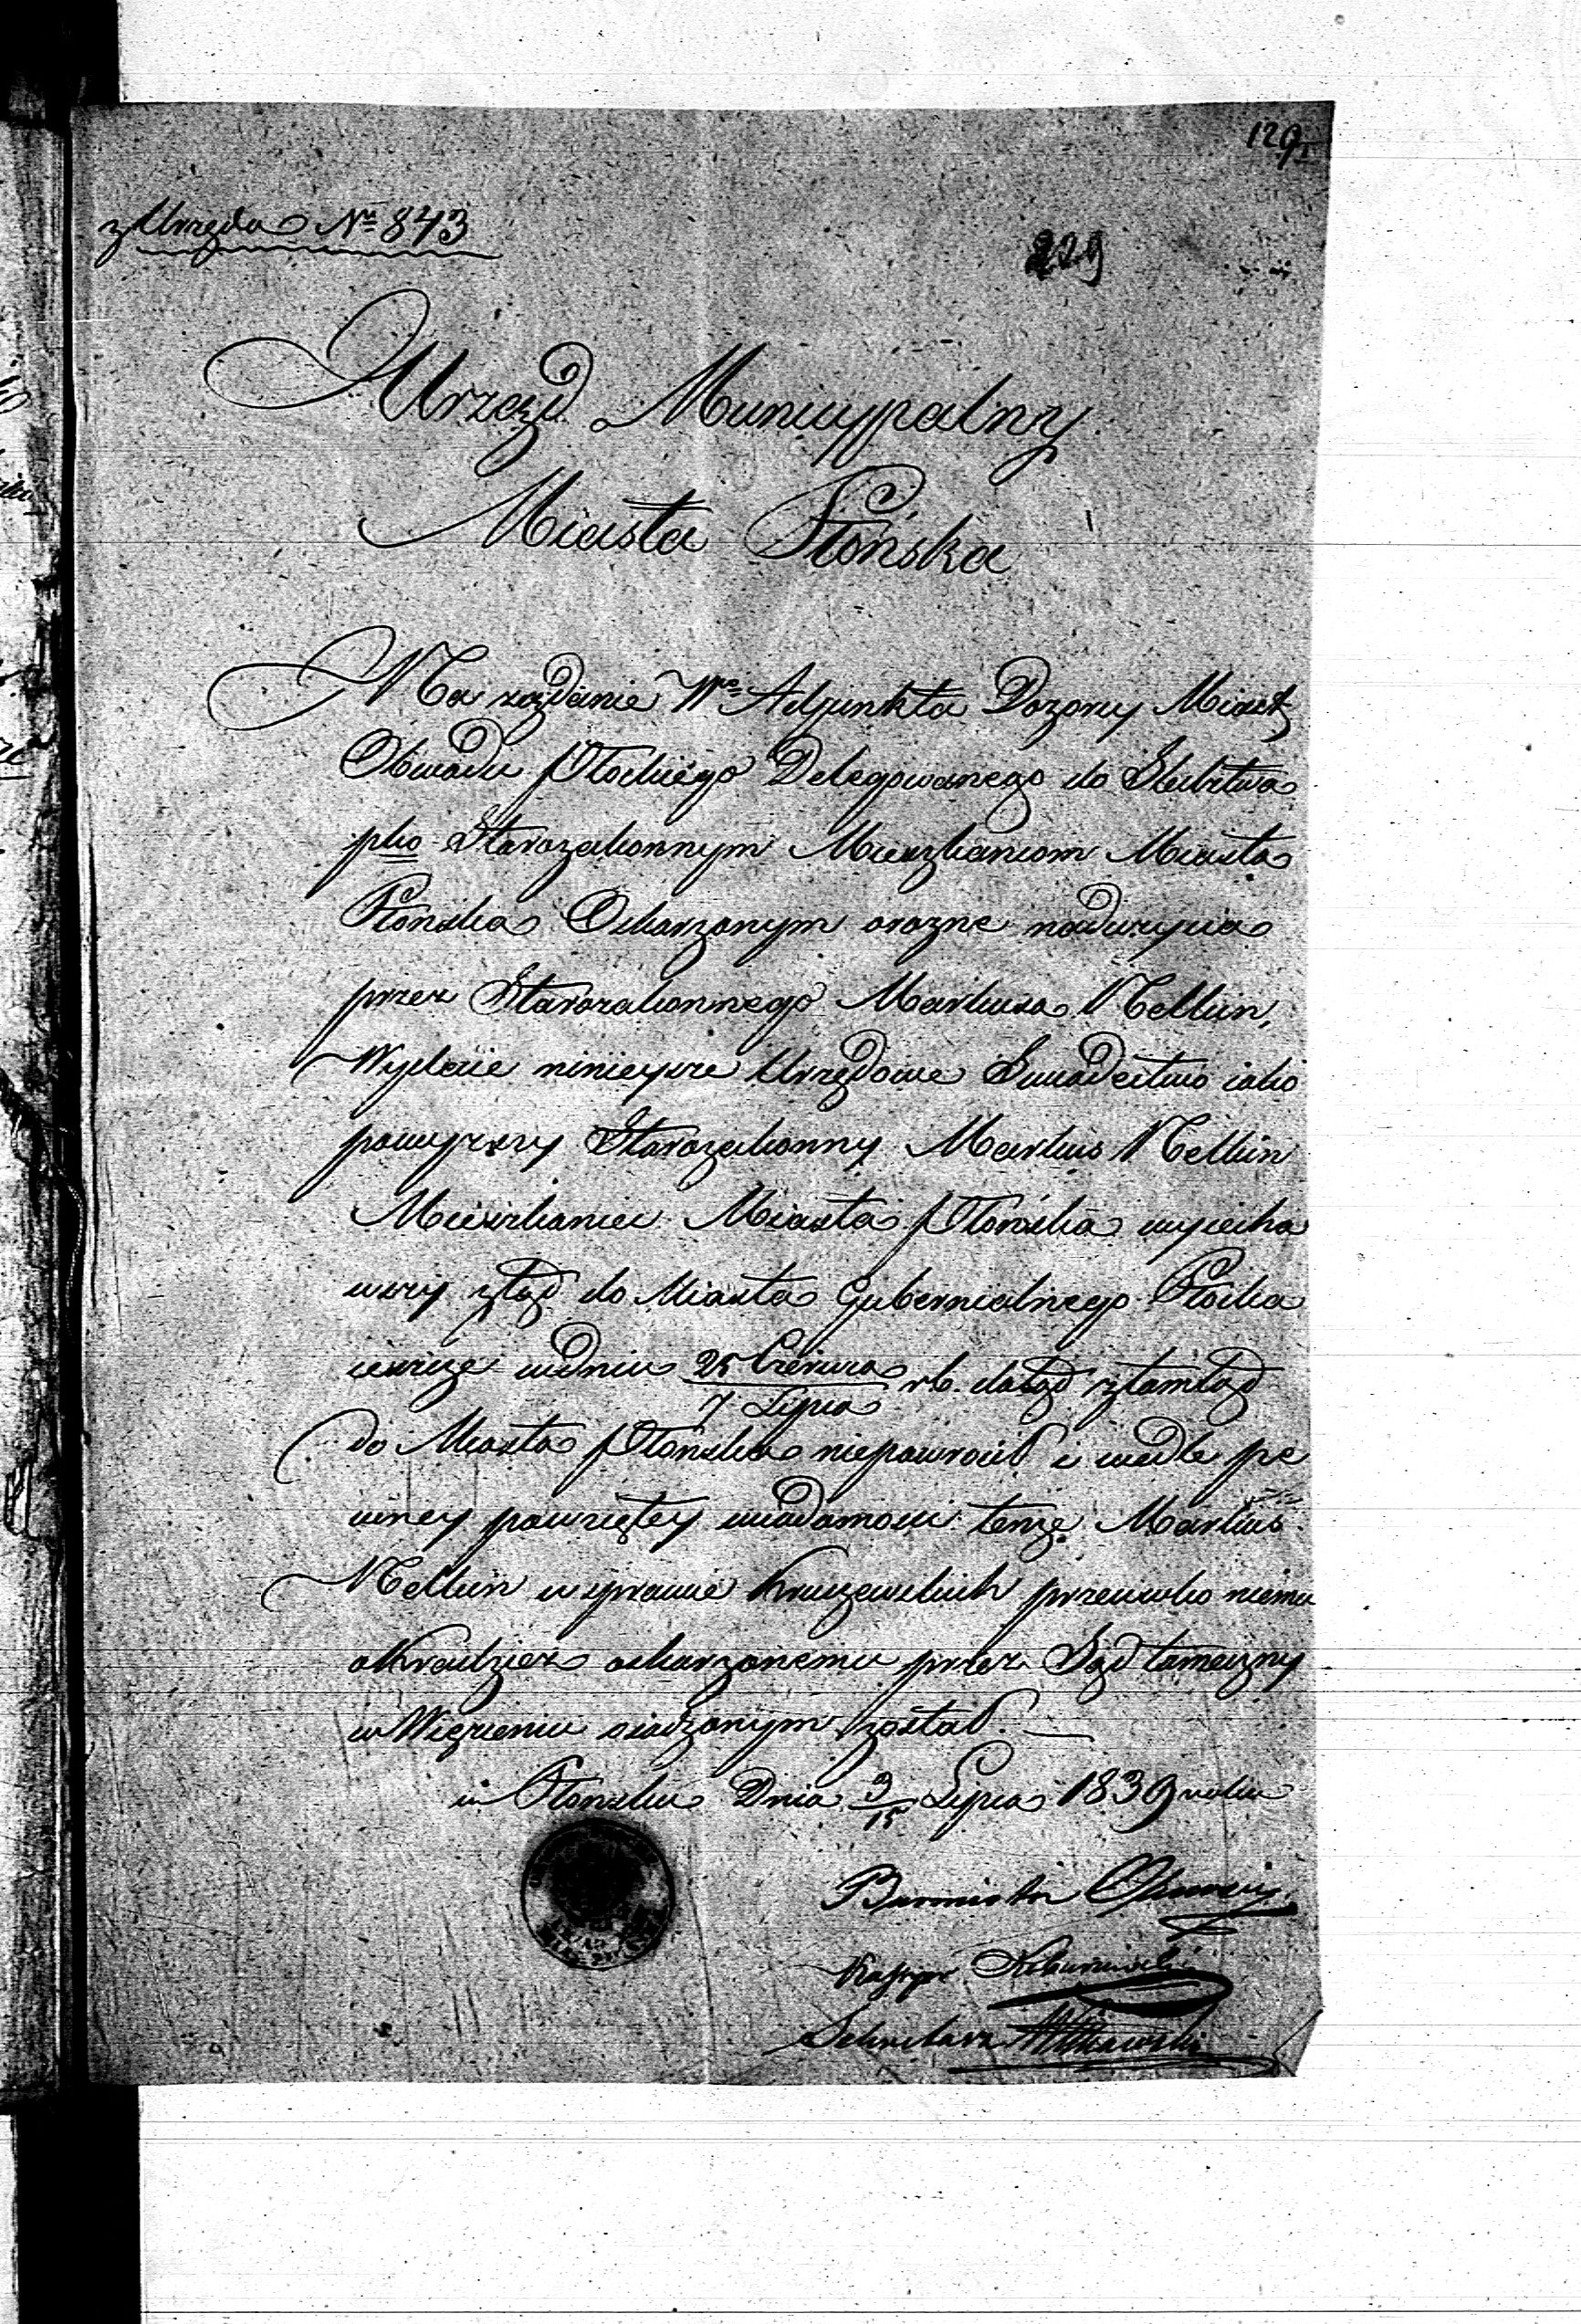 129
z Urzędu Nr 843
229
Urząd Municypalny
Miasta Płońska
Na rządanie We Adjunkta Dozorcy Miast
Obwodu Płockiego Delegowanego do Sledztwa
pko Starozakonnym Mieszkancom Miasta
Płonska Oskarzonym orozne naduzycia
przez Starozakonnego Markusa Nelkin,
Wydaie ninieysze Urzędowe Swiadectwo iako
powyzszy Starozakonny Markus Nelkin
Mieszkaniec Miasta Płońska wyiecha
wszy ztąd do Miasta Gubernialnego Płocka
ieszcze wdniu 25 Czerwca / 7 Lipca rb. dotąd ztamtąd
do Miasta Płońska niepowrocił i wedle pe
wney powziętey wiadomosci tenze Markus
Nelkin wsprawie Kruszewskich przeciwko niemu
okradziez oskarzonemu przez Sąd tameczny
w Więzieniu osadzonym został.
w Płonsku Dnia 3/15 Lipca 1839 roku
Burmistrz
Kassyer
Sekretarz